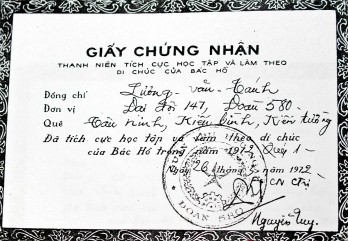 GIẤY CHỨNG NHẬN
THANH NIÊN TÍCH CỰC HỌC TẬP VÀ LÀM THEO
DI CHÚC CỦA BÁC HỒ
Đồng chí Lương văn Tánh
Đơn vị Đại đội 147, Đoàn 580
Quê Tân ninh, Kiến bình, Kiến tường
Đã tích cực học tập và làm theo di chúc
của Bác Hồ trong năm 1972 Quý 1
Ngày 26 tháng 1972
CN Chị
Nguyễn